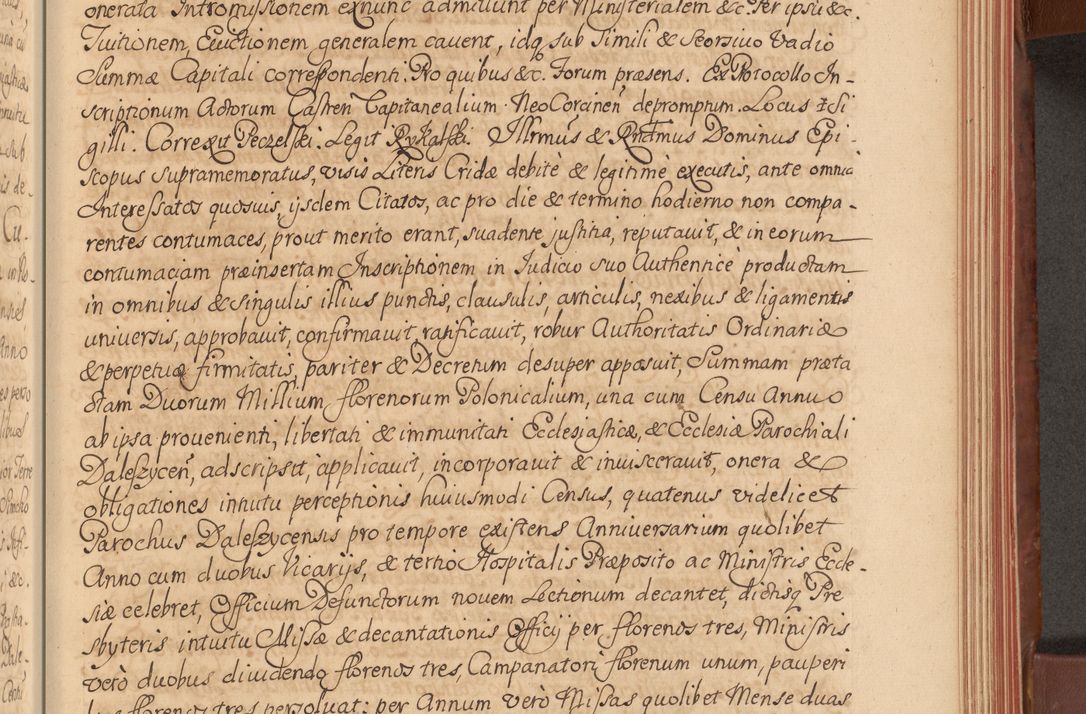 onerata Intromissionem exnunc admittunt per Ministerialem &c. Per ipsu &c.
Tuitionem, Evictionem generalem cavent, idq sub Simili & Seorsivo Vadio
Summæ Capitali correspondenti. Pro quibus &c. Forum præsens. Ex Protocollo In-
scriptionum Actorum Castren Capitanealium NeoCorcinen depromptum. Locus Si
gilli. Correxit Peczelski. Legit Rykalski. Illrmus & Rndmus Dominus Epi-
scopus supramemoratus, visis Literis Cridæ debitè & legitimè executis, ante omnia
Interessatos quosvis, ijsdem Citatos, ac pro die & termino hodierno non compa-
rentes contumaces, prout merito erant, suadente justitia, reputavit, & in eorum
contumaciam præinsertam Inscriptionem in Judicio suo Authenticè productam
in omnibus & singulis illius punctis, clausulis, articulis, nexibus & ligamentis
universis, approbavit, confirmavit, ratificavit, robur Authoritatis Ordinariæ
& perpetuæ firmitatis, pariter & Decretum desuper apposuit, Summam præta
ctam Duorum Millium florenorum Polonicalium, una cum Censu Annuo
ab ipsa provenienti, libertati & immunitati Ecclesiasticæ, & Ecclesiæ Parochiali
Daleszycen, adscripsit, applicavit, incorporavit & invisceravit, onera &
obligationes intuitu perceptionis huiusmodi Census, quatenus videlicet
Parochus Daleszycensis pro tempore existens Anniversarium quolibet
Anno cum duobus Vicarijs, & tertio Hospitalis Præposito ac Ministris Eccle-
siæ celebret, Officium Defunctorum novem Lectionum decantet, dictisq Pre
sbyteris intuitu Missæ & decantationis Officij per florenos tres, Ministris
verò duobus dividendo florenos tres, Campanatori florenum unum, pauperi
florenos tres persolvat: per Annum verò Missas quolibet Mense duas